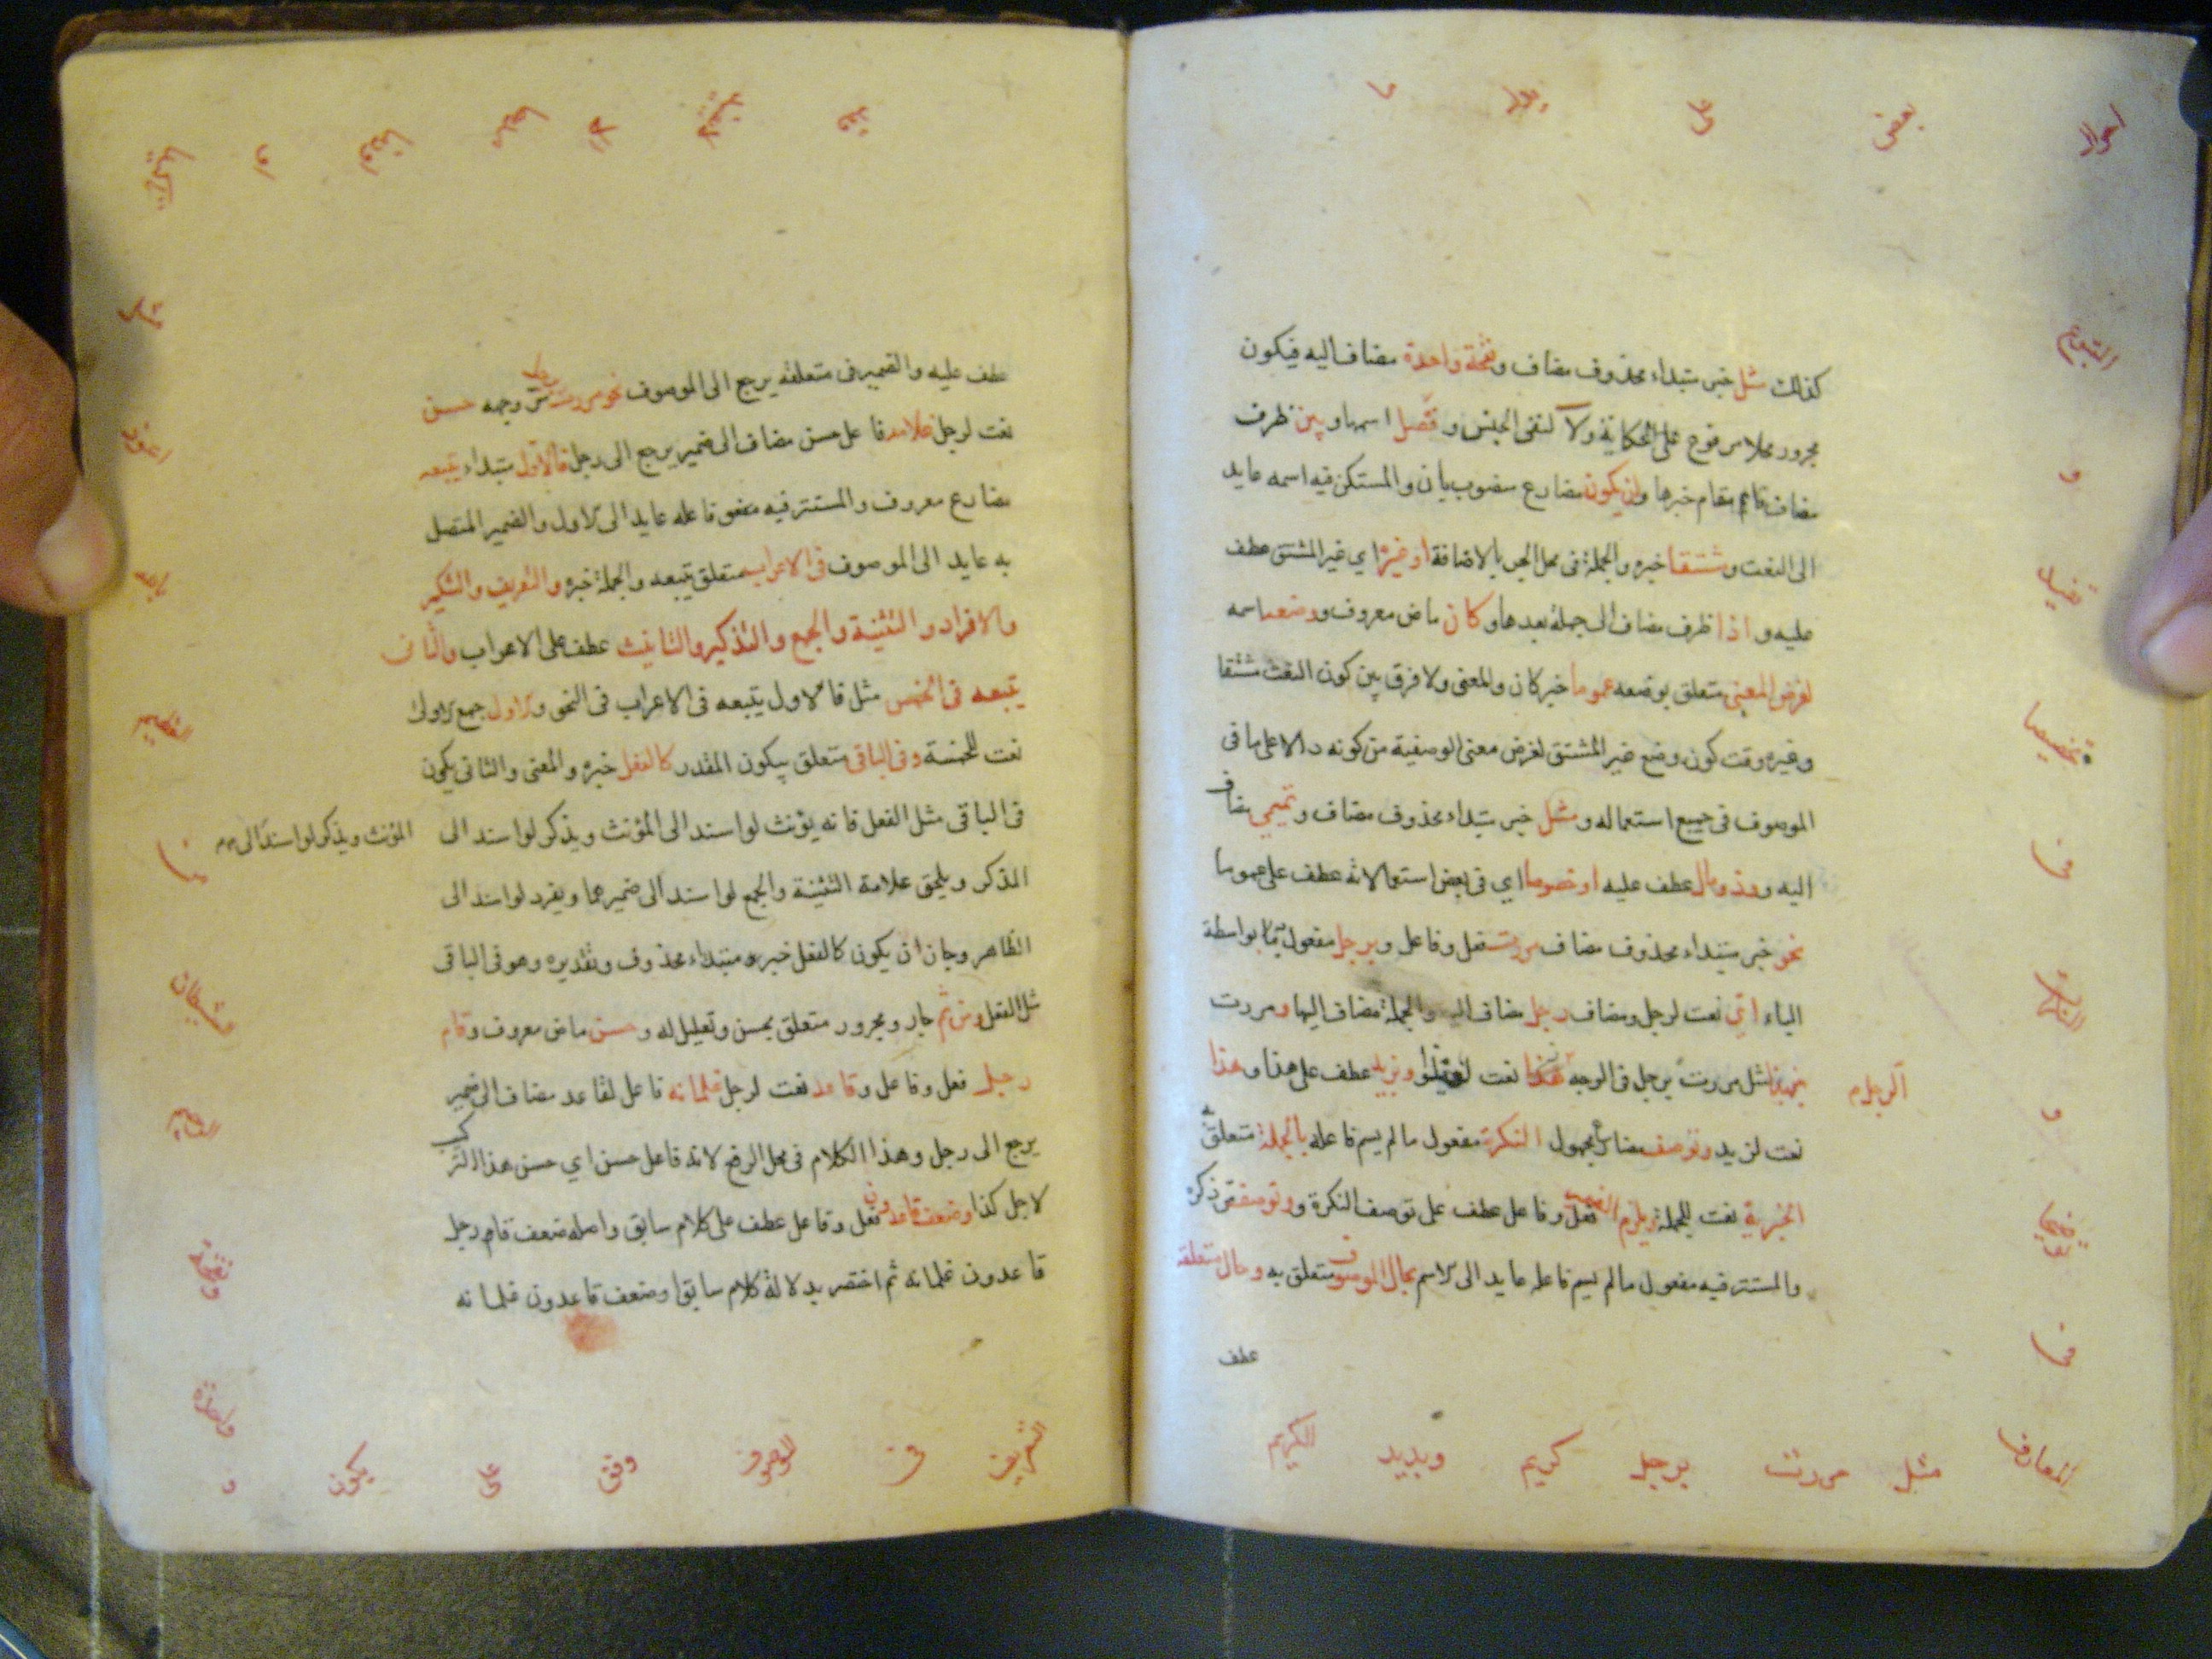 كذلك مثل خبر مبتداء محذوف مضاف ونفخة واحدة مضاف اليه فيكون
مجرور محلا مرفوع على الحكاية ولا لنفى الجنس وفصل اسمها وبين ظرف
مضاف قايم مقام خبرها وان يكون مضارع منصوب بان والمستكن فيه اسمه عايد
الى النعت ومشتقا خبره والجملة فى محل الجر بالاضافة او غيره اي غير المشتق عطف
عليه و اذا ظرف مضاف الى جملة بعدها وكان ماض معروف ووضعه اسمه
لغرض المعنى متعلق بوضعه عموما خبر كان والمعنى ولا فرق بين كون النعت مشتقا
وغيره وقت كون وضع غير المشتق لغرض معنى الوصفية من كونه دالا على ما فى
الموصوف فى جميع استعماله ومثل خبر مبتداء محذوف مضاف وتميمي مضاف
اليه وذو مال عطف عليه او خصوصا اي فى بعض استعمالاته عطف على عموما
نحو خبر مبتداء محذوف مضاف مررت فعل وفاعل وبرجل مفعول بواسطة
الباء اي نعت لرجل ومضاف رجل مضاف اليه والجملة مضاف اليها ومررت
بهذا مثل مررت برجل فى الوجه نعت وبزيد عطف على هذا وهذا
الرجل م
نعت لزيد وتوصف مضارع مجهول النكرة مفعول ما لم يسم فاعله بالجملة متعلق به
الخبرية نعت للجملة ويلزم الضمير فعل وفاعل عطف على توصف النكرة وتوصف مر ذكره
والمستتر فيه مفعول ما لم يسم فاعله عايد الى الاسم بحال الموصوف متعلق به وحال متعلقه
عطف
احوال
بعض
على
يدل
ما
المتبوع
و
تخصيصا
فى
النكرات
و
توضيحا
فى
المعارف
مثل
مررت
برجل
كريم
وبزيد
الكريم
عطف عليه والضمير فى متعلقه يرجع الى الموصوف نحو مررت برجل مر وجهه حسن
نعت لرجل غلامه فاعل حسن مضاف الى ضمير يرجع الى رجل فالاول مبتداء يتبعه
مضارع معروف والمستتر فيه مفعول فاعله عايد الى الاول والضمير المتصل
به عايد الى الموصوف فى الاعراب متعلق يتبعه والجملة خبره والتعريف والتنكير
والافراد والتثنية والجمع والتذكير والتانيث عطف على الاعراب والثانى
يتبعه فى الخمس مثل فالاول يتبعه فى الاعراب فى النحو والاول جمع الاولى
نعت للخمسة وفى الباقى متعلق بيكون المقدر كالفعل خبره والمعنى والثانى يكون
فى الباقى مثل الفعل فانه يؤنث لو اسند الى المؤنث ويذكر لو اسند الى
المؤنث ويذكر لو اسند الى مم
المذكر ويلحق علامة التثنية والجمع لو اسند الى ضميرهما ويفرد لو اسند الى
الظاهر وجاز ان يكون كالفعل خبر مبتداء محذوف وتقديره وهو فى الباقى
مثل الفعل ومن ثم جار ومجرور متعلق بحسن وتعليل له وحسن ماض معروف وقام
رجل فعل وفاعل وقاعد نعت لرجل غلمانه فاعل لقاعد مضاف الى ضمير
يرجع الى رجل وهذا الكلام فى محل الرفع لانه فاعل حسن اي حسن هذا التركيب
لاجل كذا وضعف قاعدون فعل وفاعل عطف على كلام سابق واصله ضعف قام رجل
قاعدون غلمانه ثم اختصر بدلالة كلام سابق اوضعف قاعدون غلمانه
مثل
و
يكون
على
وفق
الموصوف
فى
التعريف